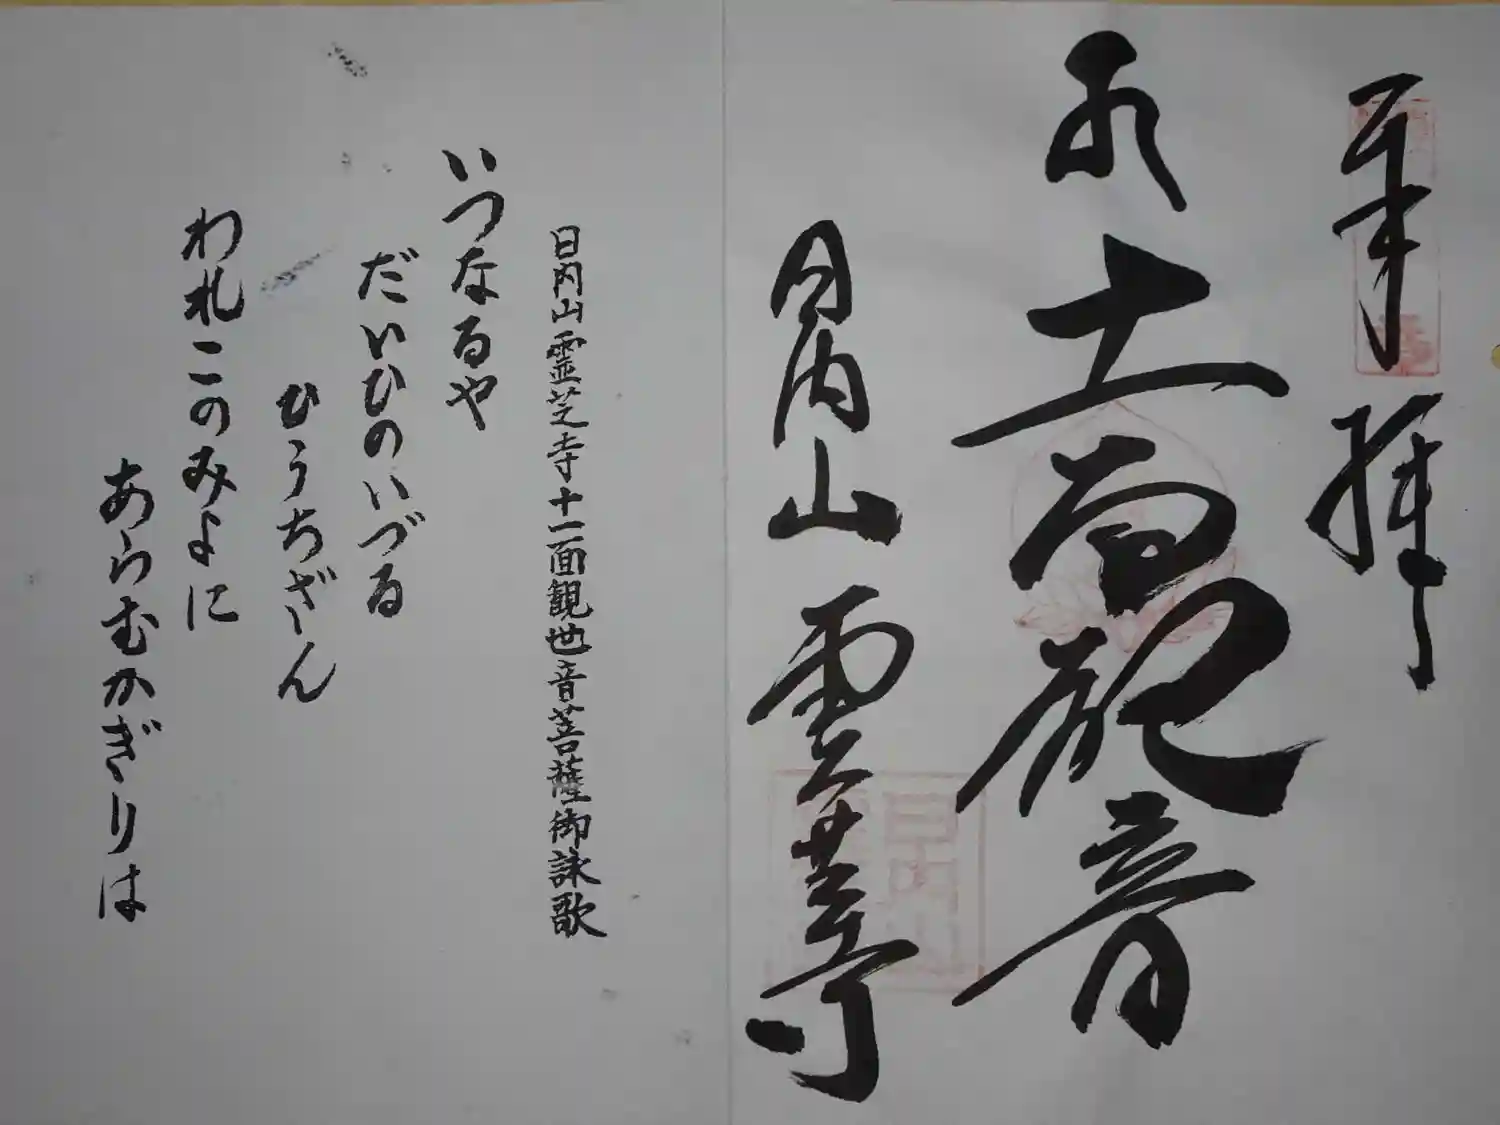 奉拝
十一面観音
日内山 霊芝寺
日内山
日内山霊芝寺十一面観世音菩薩御詠歌
いつなるや
だいひのいづる
ひうちざん
われこのみよに
あらむかぎりは